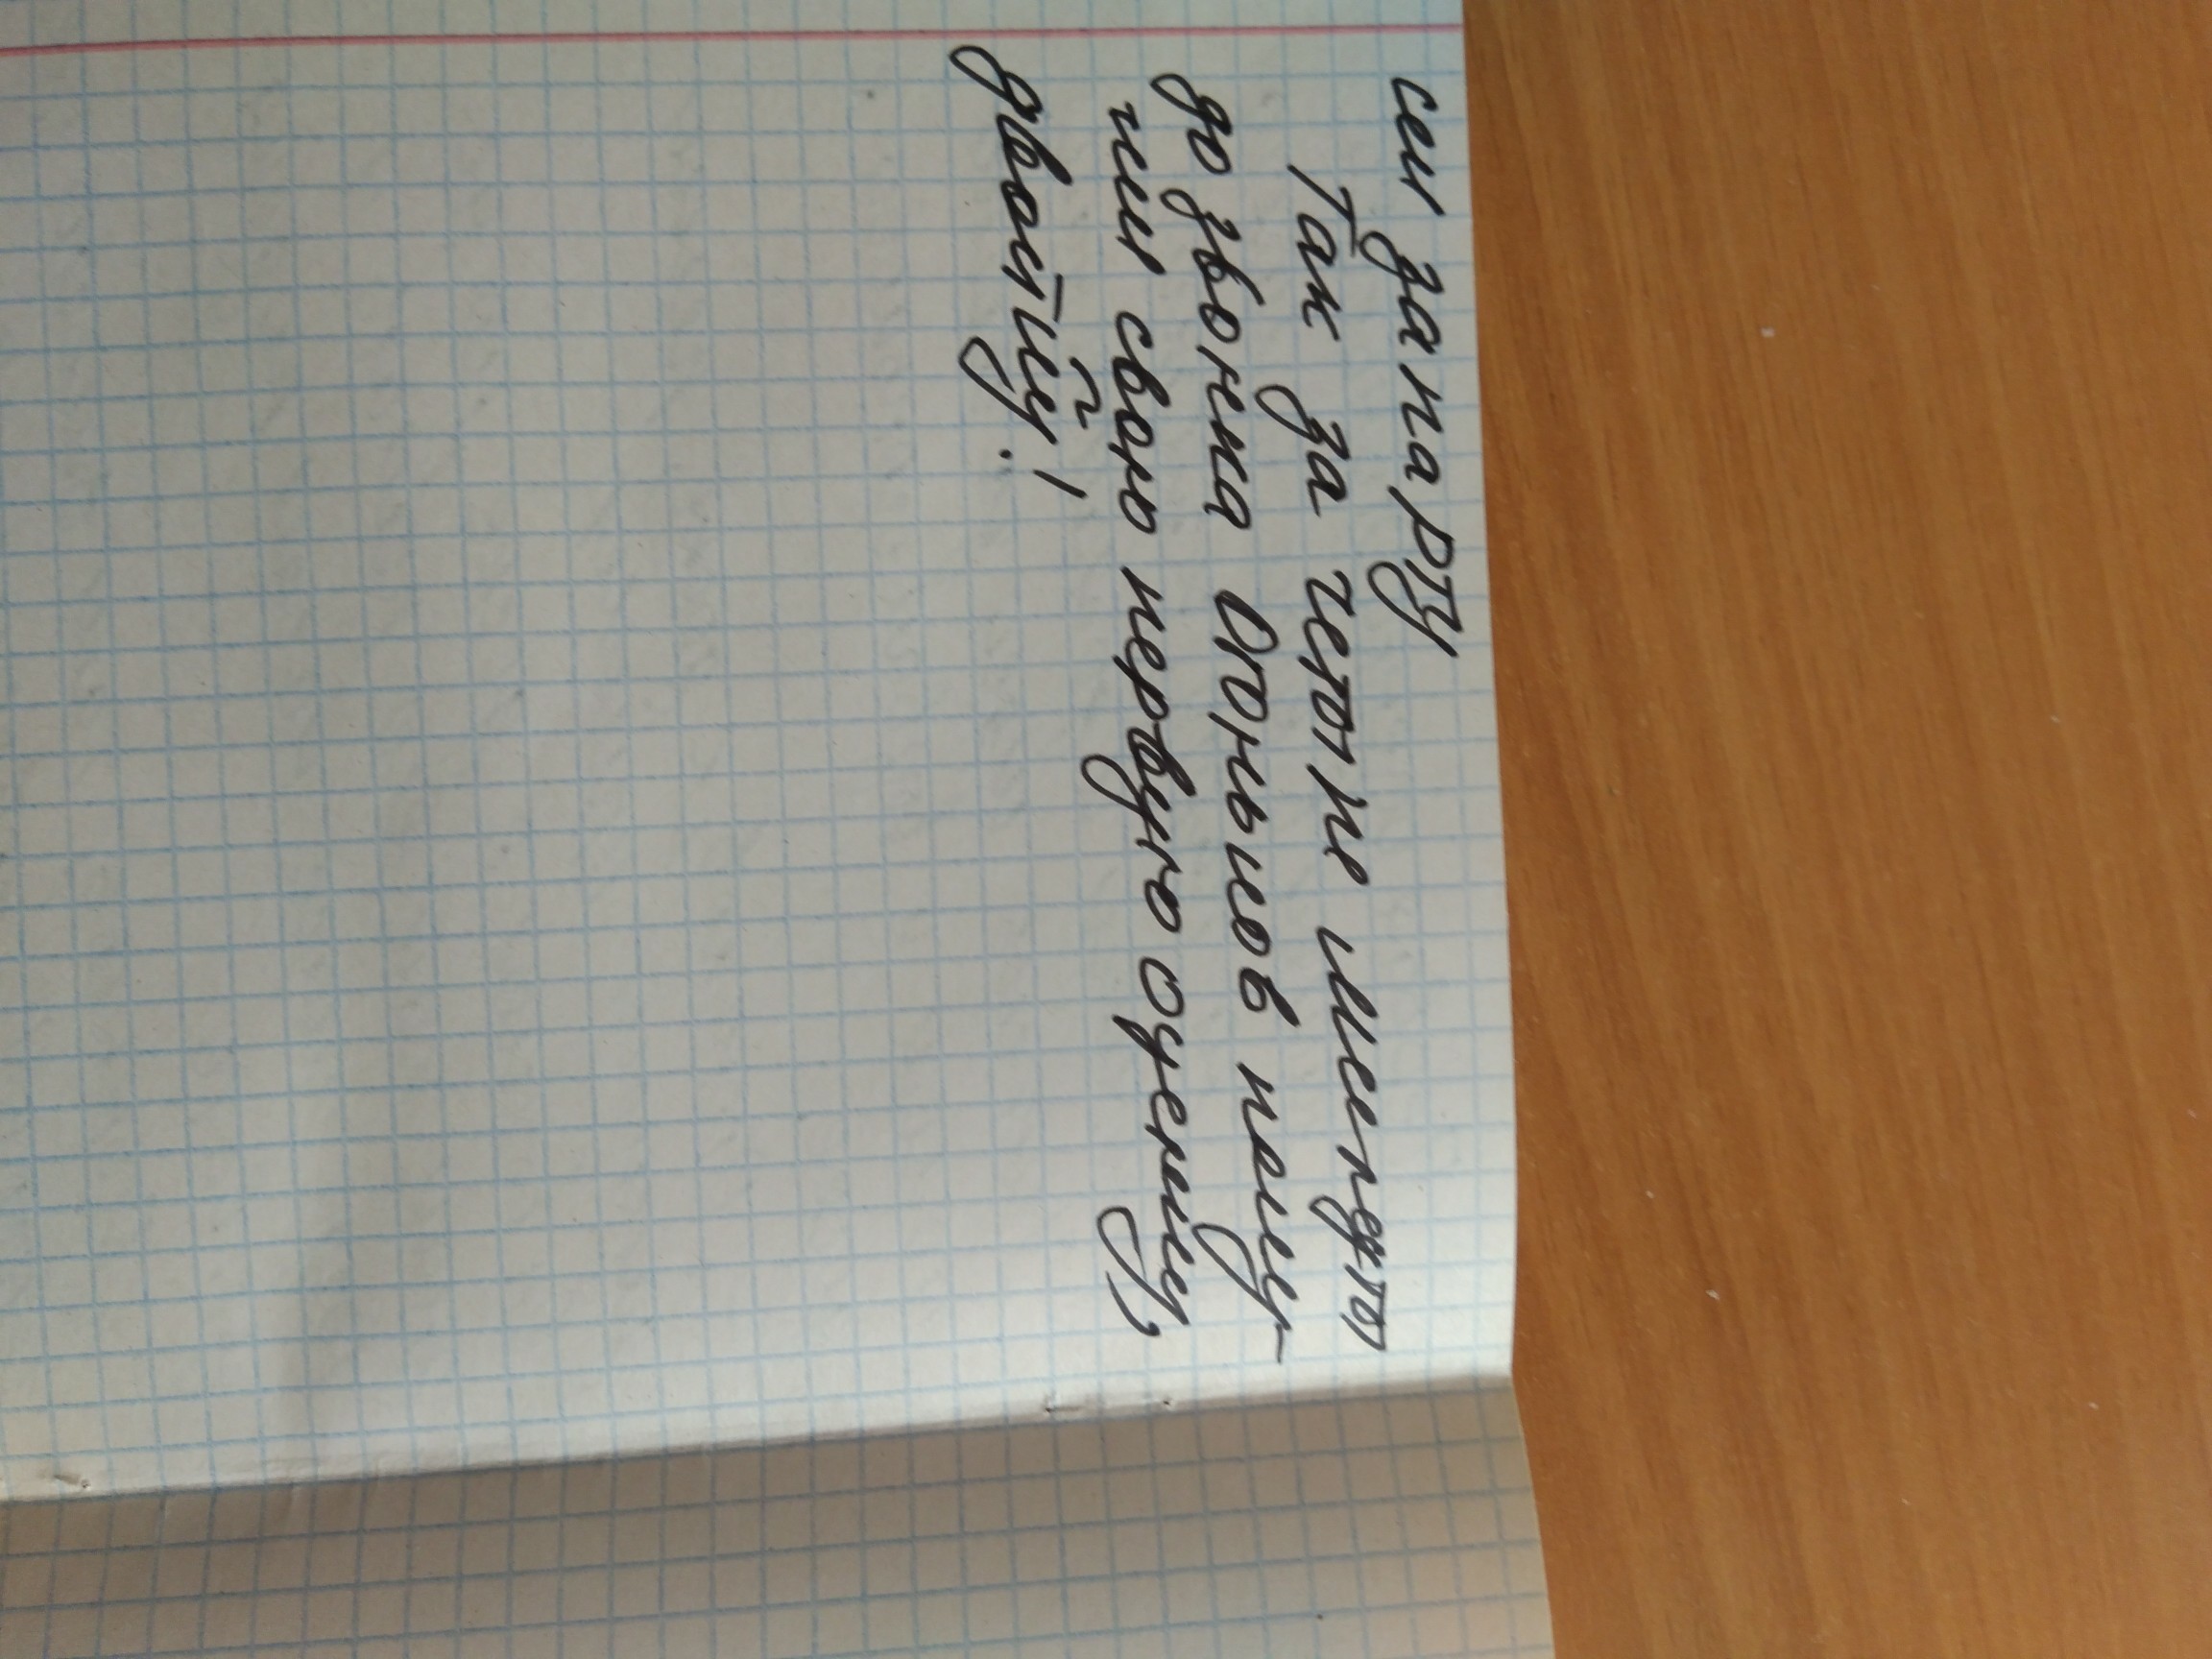 сел за парту
Так за четыре минуты
до звонка Огоньков полу-
чил свою первую оценку,
двойку!